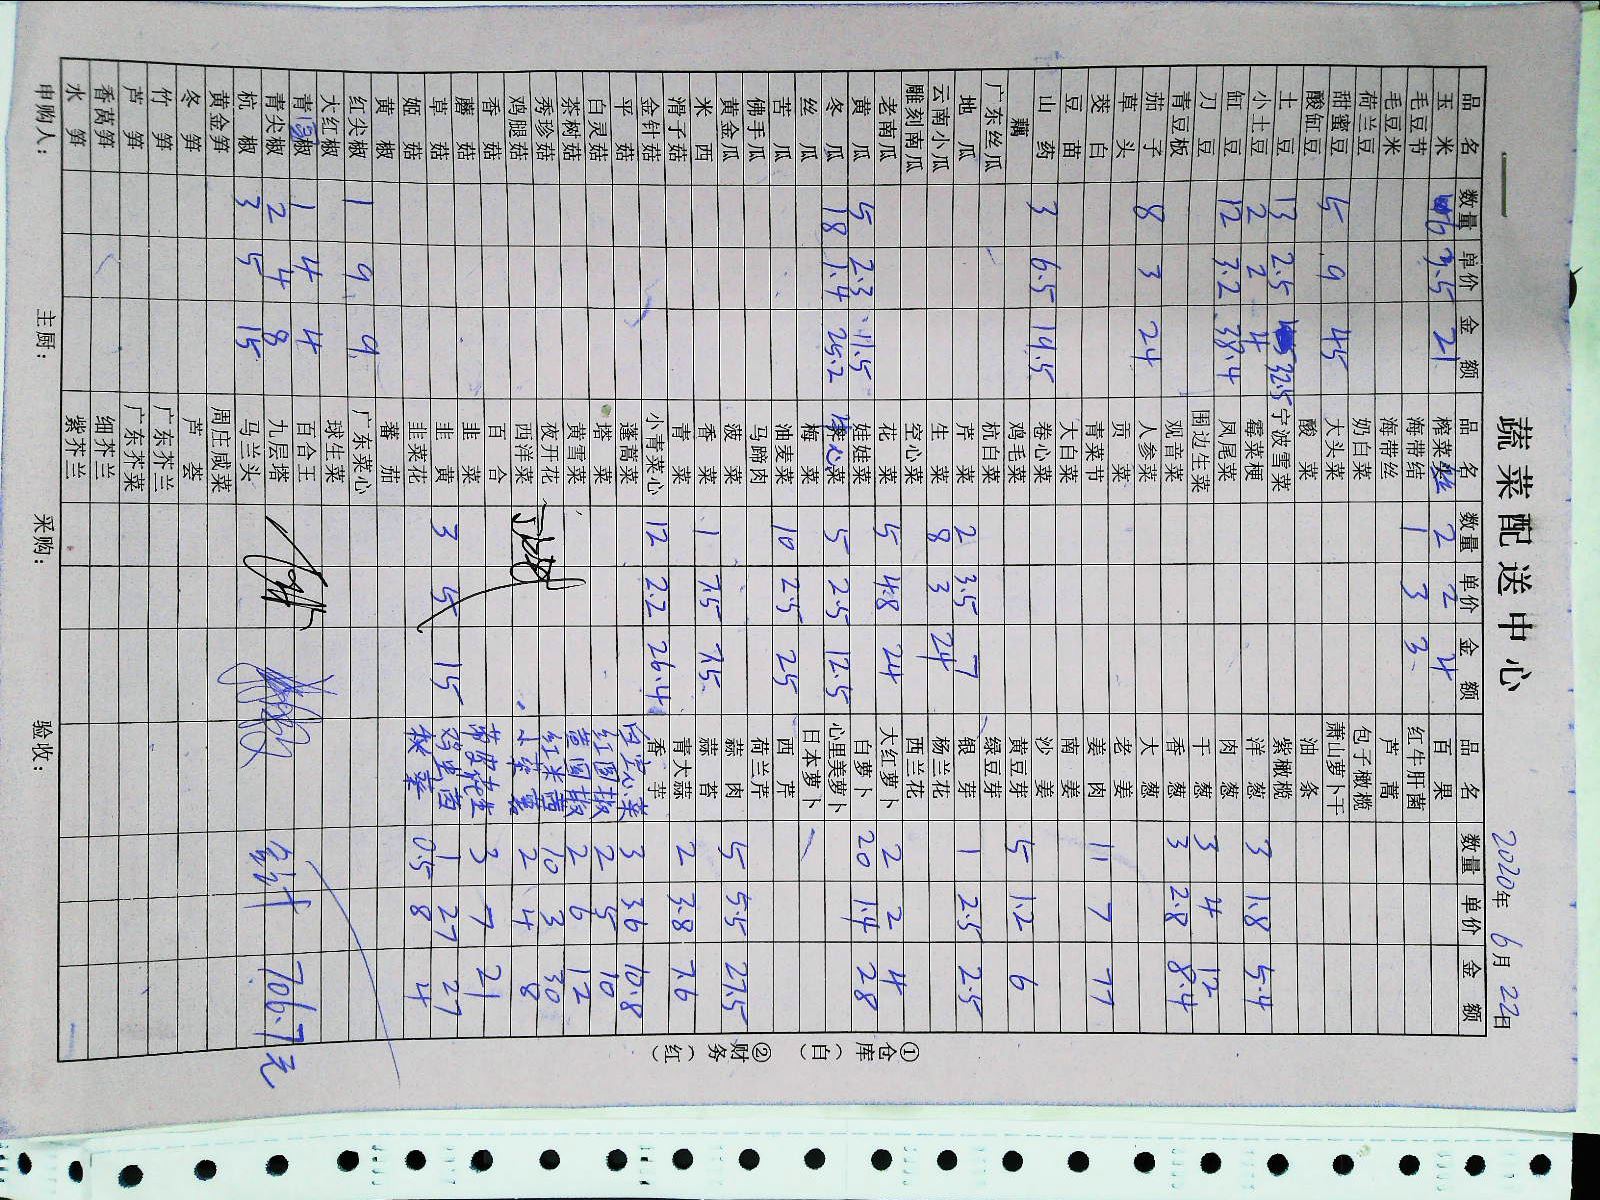 蔬菜配送中心
2020年 6月 22日
品名 数量 单价 金额 品名 数量 单价 金额 品名 数量 单价 金额
玉米 6 3.5 21 榨菜丝 2 2 4 百果
毛豆节 海带结 1 3 3 红牛肝菌
毛豆米 海带丝 芦蒿
荷兰豆 奶白菜 包子橄榄
甜蜜豆 5 9 45 大头菜 萧山萝卜干
酸缸豆 酸菜 油条
土豆 13 2.5 32.5 宁波雪菜 紫橄榄
小土豆 2 2 4 霉菜梗 洋葱 3 1.8 5.4
缸豆 12 3.2 38.4 凤尾菜 肉葱
刀豆 围边生菜 干葱 3 4 12
青豆板 观音菜 香葱 3 2.8 8.4
茄子 8 3 24 人参菜 大葱
草头 贡菜 老姜
茭白 青菜节 姜肉 11 7 77
豆苗 大白菜 南姜
山药 3 6.5 19.5 卷心菜 沙姜
藕 鸡毛菜 黄豆芽 5 1.2 6
广东丝瓜 杭白菜 绿豆芽
地瓜 芹菜 2 3.5 7 银芽 1 2.5 2.5
云南小瓜 生菜 8 3 24 杨兰花
雕刻南瓜 空心菜 西兰花
老南瓜 花菜 5 4.8 24 大红萝卜 2 2 4
黄瓜 5 2.3 11.5 娃娃菜 白萝卜 20 1.4 28
冬瓜 18 1.4 25.2 菜 5 2.5 12.5 心里美萝卜
丝瓜 梅菜 日本萝卜
苦瓜 油麦菜 10 2.5 25 西芹
佛手瓜 马蹄肉 荷兰芹
黄金瓜 菠菜 蒜肉 5 5.5 27.5
米西 香菜 1 7.5 7.5 蒜苔
滑子菇 青菜 青大蒜 2 3.8 7.6
金针菇 小青菜心 12 2.2 26.4 香芋
平菇 蓬蒿菜 3 3.6 10.8
白灵菇 塔菜 红圆椒 2 5 10
茶树菇 黄雪菜 黄圆椒 2 6 12
秀珍菇 夜开花 红米苋 10 3 30
鸡腿菇 西洋菜 2 4 8
香菇 百合 3 7 21
蘑菇 韭菜 1 27 27
草菇 韭黄 3 5 15 秋葵 0.5 8 4
姬菇 韭菜花
黄椒 蕃茄
红尖椒 1 9 9 广东菜心
大红椒 球生菜
青椒 1 4 4 百合王
青尖椒 2 4 8 九层塔 合计 706.7元
杭椒 3 5 15 马兰头
黄金笋 周庄咸菜
冬笋 芦荟
竹笋 广东芥兰
芦笋 广东芥菜
香莴笋 细芥兰
水笋 紫芥兰
申购人： 主厨： 采购： 验收：
①仓库（白） ②财务（红）